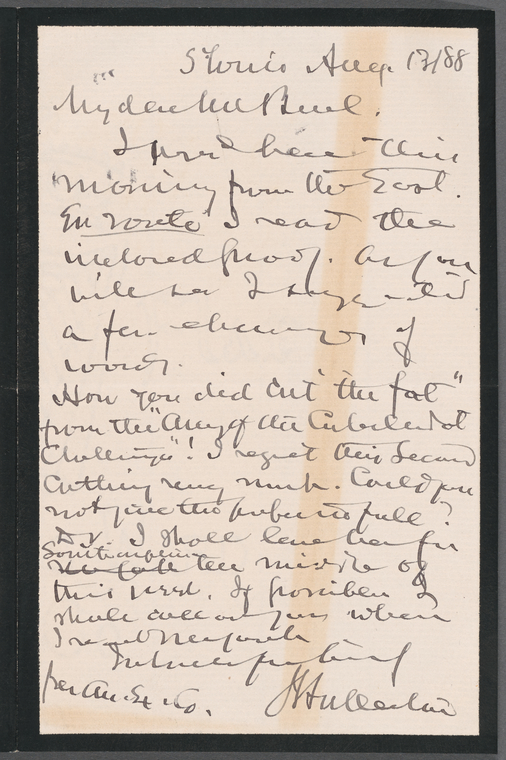 St Louis Aug. 13/88
My dear Mr Buel.
I arrived here this
morning from the East.
En route I read the
inclosed proof. As you
will see I suggested
a few changes of
words.
How you did cut "the fat"
from the "Army of the Cumberland at
Chattanooga"! I regret this second
cutting very much. Could you
not give the paper in full?
I shall leave here for
the middle of
this week. If possible I
shall call on you when
I reach New York
In haste yours truly
J S Fullerton